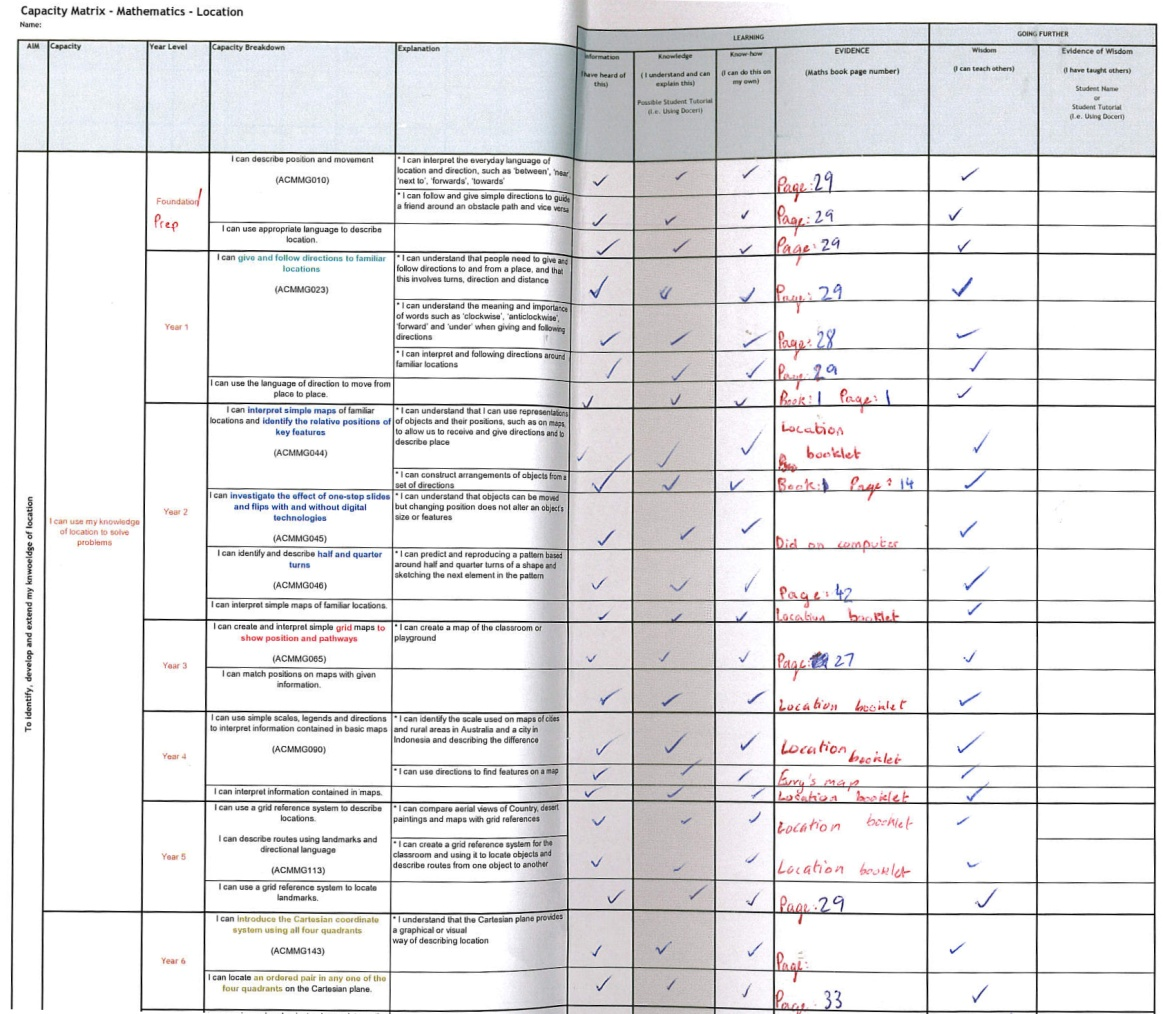 Capacity Matrix - Mathematics - Location
Name:
LEARNING
GOING FURTHER
AIM
Capacity
Year Level
Capacity Breakdown
Explanation
Information
(I have heard of
this)
Knowledge
( I understand and can
explain this)
Possible Student Tutorial
(i.e. Using Doceri)
Know-how
(I can do this on
my own)
EVIDENCE
(Maths book page number)
Wisdom
(I can teach others)
Evidence of Wisdom
(I have taught others)
Student Name
or
Student Tutorial
(i.e. Using Doceri)
To identify, develop and extend my knwoeldge of location
I can use my knowledge
of location to solve
problems
Foundation/
Prep
I can describe position and movement
(ACMMG010)
* I can interpret the everyday language of
location and direction, such as 'between', 'near'
'next to', 'forwards', 'towards'
Page: 29
* I can follow and give simple directions to guide
a friend around an obstacle path and vice versa
Page: 29
I can use appropriate language to describe
location.
Page: 29
Year 1
I can give and follow directions to familiar
locations
(ACMMG023)
* I can understand that people need to give and
follow directions to and from a place, and that
this involves turns, direction and distance
Page: 29
* I can understand the meaning and importance
of words such as 'clockwise', 'anticlockwise',
'forward' and 'under' when giving and following
directions
Page: 28
* I can interpret and following directions around
familiar locations
Page: 29
I can use the language of direction to move from
place to place.
Book: 1 Page: 1
Year 2
I can interpret simple maps of familiar
locations and identify the relative positions of
key features
(ACMMG044)
* I can understand that I can use representations
of objects and their positions, such as on maps,
to allow us to receive and give directions and to
describe place
Location
booklet
* I can construct arrangements of objects from a
set of directions
Book: 1 Page: 14
I can investigate the effect of one-step slides
and flips with and without digital
technologies
(ACMMG045)
* I can understand that objects can be moved
but changing position does not alter an object's
size or features
Did on computer
I can identify and describe half and quarter
turns
(ACMMG046)
* I can predict and reproducing a pattern based
around half and quarter turns of a shape and
sketching the next element in the pattern
Page: 42
I can interpret simple maps of familiar locations.
Location booklet
Year 3
I can create and interpret simple grid maps to
show position and pathways
(ACMMG065)
* I can create a map of the classroom or
playground
Page: 27
I can match positions on maps with given
information.
Location booklet
Year 4
I can use simple scales, legends and directions
to interpret information contained in basic maps
(ACMMG090)
* I can identify the scale used on maps of cities
and rural areas in Australia and a city in
Indonesia and describing the difference
Location
booklet
* I can use directions to find features on a map
map
I can interpret information contained in maps.
Location booklet
Year 5
I can use a grid reference system to describe
locations.
I can describe routes using landmarks and
directional language
(ACMMG113)
* I can compare aerial views of Country, desert
paintings and maps with grid references
Location booklet
* I can create a grid reference system for the
classroom and using it to locate objects and
describe routes from one object to another
Location booklet
I can use a grid reference system to locate
landmarks.
Page: 29
Year 6
I can introduce the Cartesian coordinate
system using all four quadrants
(ACMMG143)
* I understand that the Cartesian plane provides
a graphical or visual
way of describing location
Page:
I can locate an ordered pair in any one of the
four quadrants on the Cartesian plane.
Page: 33